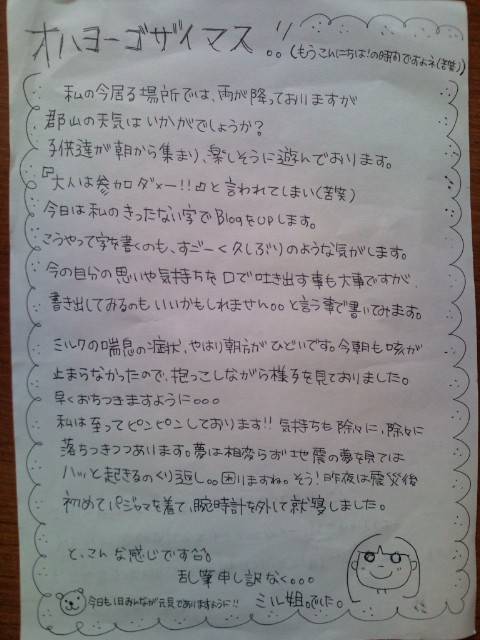 オハヨーゴザイマス!!。。(もうこんにちは!の時間ですよネ(苦笑))
私の今居る場所では、雨が降っておりますが
郡山の天気はいかがでしょうか?
子供達が朝から集まり、楽しそうに遊んでおります。
『大人は参加ダメー!!』と言われてしまい(苦笑)
今日は私のきったない字でBlogをUPします。
こうやって字を書くのも、すごーく久しぶりのような気がします。
今の自分の思いや気持ちを口で吐き出す事も大事ですが、
書き出してみるのもいいかもしれません。。と言う事で書いてみます。
ミルクの喘息の症状、やはり朝方がひどいです。今朝も咳が
止まらなかったので、抱っこしながら様子を見ておりました。
早くおちつきますように。。。
私は至ってピンピンしております!!気持ちも除々に、除々に
落ちつきつつあります。夢は相変らず地震の夢を見ては
ハッと起きるのくり返し。。困りますね。そう!昨夜は震災後
初めてパジャマを着て、腕時計を外して就寝しました。
と、こんな感じです。
乱筆申し訳なく。。。
今日も1日みんなが元気でありますように!!
ミル姐。でした。